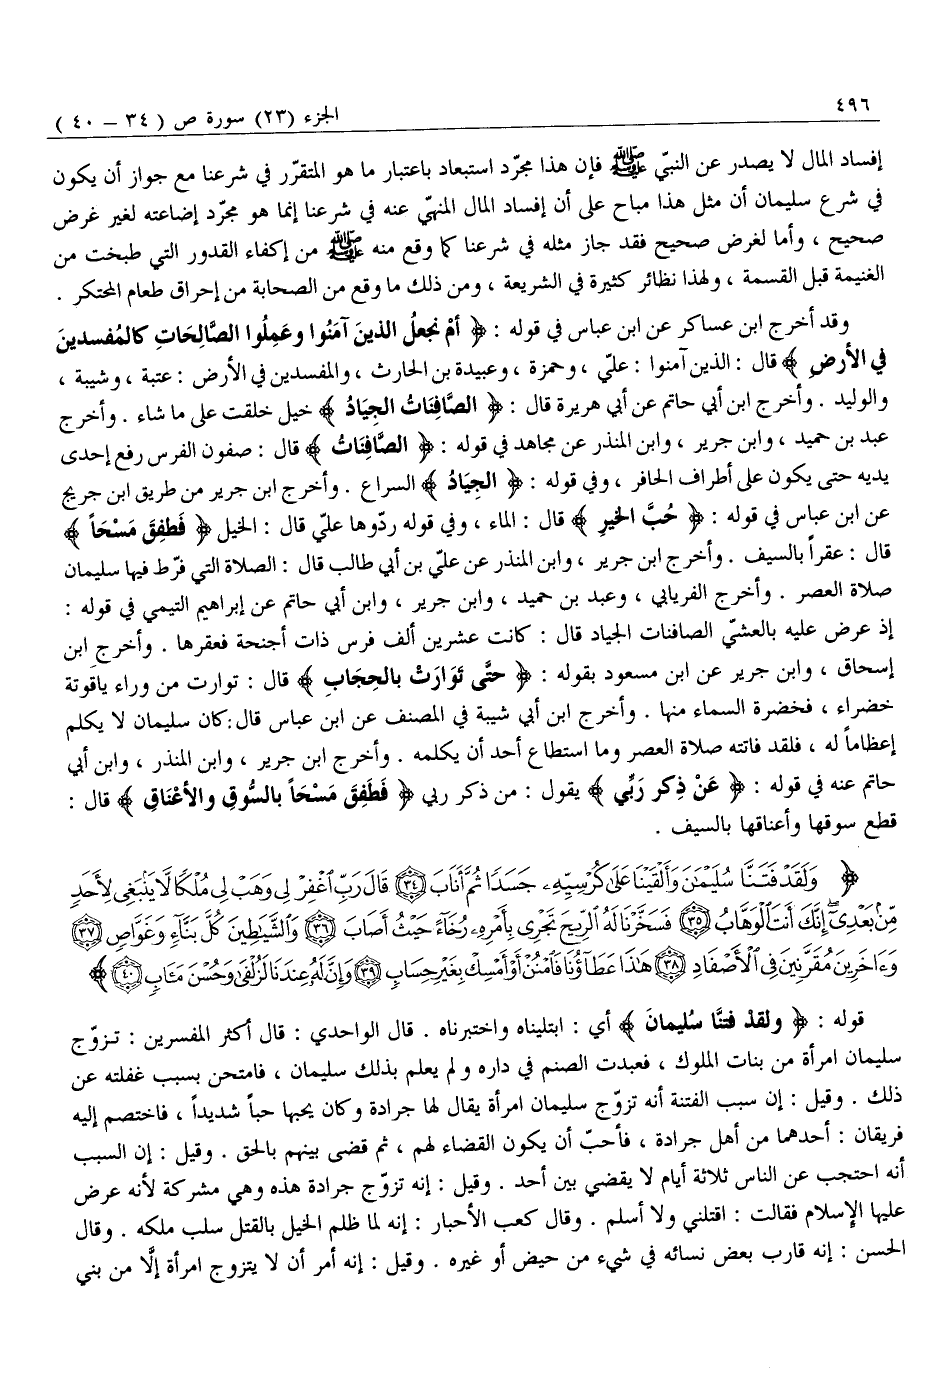 ٤٩٦
الجزء (٢٣) سورة ص ( ٣٤ – ٤٠ )
إفساد المال لا يصدر عن النبيّ ﷺ فإن هذا مجرّد استبعاد باعتبار ما هو المتقرّر في شرعنا مع جواز أن يكون
في شرع سليمان أن مثل هذا مباح على أن إفساد المال المنهيّ عنه في شرعنا إنما هو مجرّد إضاعته لغير غرض
صحيح ، وأما لغرض صحيح فقد جاز مثله في شرعنا كما وقع منه ﷺ من إكفاء القدور التي طبخت من
الغنيمة قبل القسمة ، ولهذا نظائر كثيرة في الشريعة ، ومن ذلك ما وقع من الصحابة من إحراق طعام المحتكر .
وقد أخرج ابن عساكر عن ابن عباس في قوله : ﴿ أمْ نجعلُ الذينَ آمَنُوا وعَمِلُوا الصَّالِحَاتِ كالمُفسدينَ
في الأرضِ ﴾ قال : الذين آمنوا : عليّ ، وحمزة ، وعبيدة بن الحارث ، والمفسدين في الأرض : عتبة ، وشيبة ،
والوليد . وأخرج ابن أبي حاتم عن أبي هريرة قال : ﴿ الصَّافِنَاتُ الجِيَادُ ﴾ خيل خلقت على ما شاء . وأخرج
عبد بن حميد ، وابن جرير ، وابن المنذر عن مجاهد في قوله : ﴿ الصَّافِنَاتُ ﴾ قال : صفون الفرس رفع إحدى
يديه حتى يكون على أطراف الحافر ، وفي قوله : ﴿ الجِيَادُ ﴾ السراع . وأخرج ابن جرير من طريق ابن جريج
عن ابن عباس في قوله : ﴿ حُبَّ الخيرِ ﴾ قال : الماء ، وفي قوله ردّوها عليّ قال : الخيل ﴿ فَطَفِقَ مَسْحَاً ﴾
قال : عقراً بالسيف . وأخرج ابن جرير ، وابن المنذر عن عليّ بن أبي طالب قال : الصلاة التي فرّط فيها سليمان
صلاة العصر . وأخرج الفريابي ، وعبد بن حميد ، وابن جرير ، وابن أبي حاتم عن إبراهيم التيمي في قوله :
إذ عرض عليه بالعشيّ الصافنات الجياد قال : كانت عشرين ألف فرس ذات أجنحة فعقرها . وأخرج ابن
إسحاق ، وابن جرير عن ابن مسعود بقوله : ﴿ حتَّى تَوَارَتْ بالحِجَابِ ﴾ قال : توارت من وراء ياقوتة
خضراء ، فخضرة السماء منها . وأخرج ابن أبي شيبة في المصنف عن ابن عباس قال:كان سليمان لا يكلم
إعظاماً له ، فلقد فاتته صلاة العصر وما استطاع أحد أن يكلمه . وأخرج ابن جرير ، وابن المنذر ، وابن أبي
حاتم عنه في قوله : ﴿ عَنْ ذِكر رَبِّي ﴾ يقول : من ذكر ربي ﴿ فَطَفِقَ مَسْحَاً بالسُّوقِ والأعْنَاقِ ﴾ قال :
قطع سوقها وأعناقها بالسيف .
﴿ وَلَقَدْ فَتَنَّا سُلَيْمَٰنَ وَأَلْقَيْنَا عَلَىٰ كُرْسِيِّهِۦ جَسَدًا ثُمَّ أَنَابَ ﴿٣٤﴾ قَالَ رَبِّ ٱغْفِرْ لِى وَهَبْ لِى مُلْكًا لَّا يَنۢبَغِى لِأَحَدٍ
مِّنۢ بَعْدِىٓ إِنَّكَ أَنتَ ٱلْوَهَّابُ ﴿٣٥﴾ فَسَخَّرْنَا لَهُ ٱلرِّيحَ تَجْرِى بِأَمْرِهِۦ رُخَآءً حَيْثُ أَصَابَ ﴿٣٦﴾ وَٱلشَّيَٰطِينَ كُلَّ بَنَّآءٍ وَغَوَّاصٍ ﴿٣٧﴾
وَءَاخَرِينَ مُقَرَّنِينَ فِى ٱلْأَصْفَادِ ﴿٣٨﴾ هَٰذَا عَطَآؤُنَا فَٱمْنُنْ أَوْ أَمْسِكْ بِغَيْرِ حِسَابٍ ﴿٣٩﴾ وَإِنَّ لَهُۥ عِندَنَا لَزُلْفَىٰ وَحُسْنَ مَـَٔابٍ ﴿٤٠﴾ ﴾
قوله : ﴿ ولقدْ فتنَّا سُليمانَ ﴾ أي : ابتليناه واختبرناه . قال الواحدي : قال أكثر المفسرين : تـزوّج
سليمان امرأة من بنات الملوك ، فعبدت الصنم في داره و لم يعلم بذلك سليمان ، فامتحن بسبب غفلته عن
ذلك . وقيل : إن سبب الفتنة أنه تزوّج سليمان امرأة يقال لها جرادة وكان يحبها حباً شديداً ، فاختصم إليه
فريقان : أحدهما من أهل جرادة ، فأحبّ أن يكون القضاء لهم ، ثم قضى بينهم بالحق . وقيل : إن السبب
أنه احتجب عن الناس ثلاثة أيام لا يقضي بين أحد . وقيل : إنه تزوّج جرادة هذه وهي مشركة لأنه عرض
عليها الإسلام فقالت : اقتلني ولا أسلم . وقال كعب الأحبار : إنه لما ظلم الخيل بالقتل سلب ملكه . وقال
الحسن : إنه قارب بعض نسائه في شيء من حيض أو غيره . وقيل : إنه أمر أن لا يتزوج امرأة إلَّا من بني